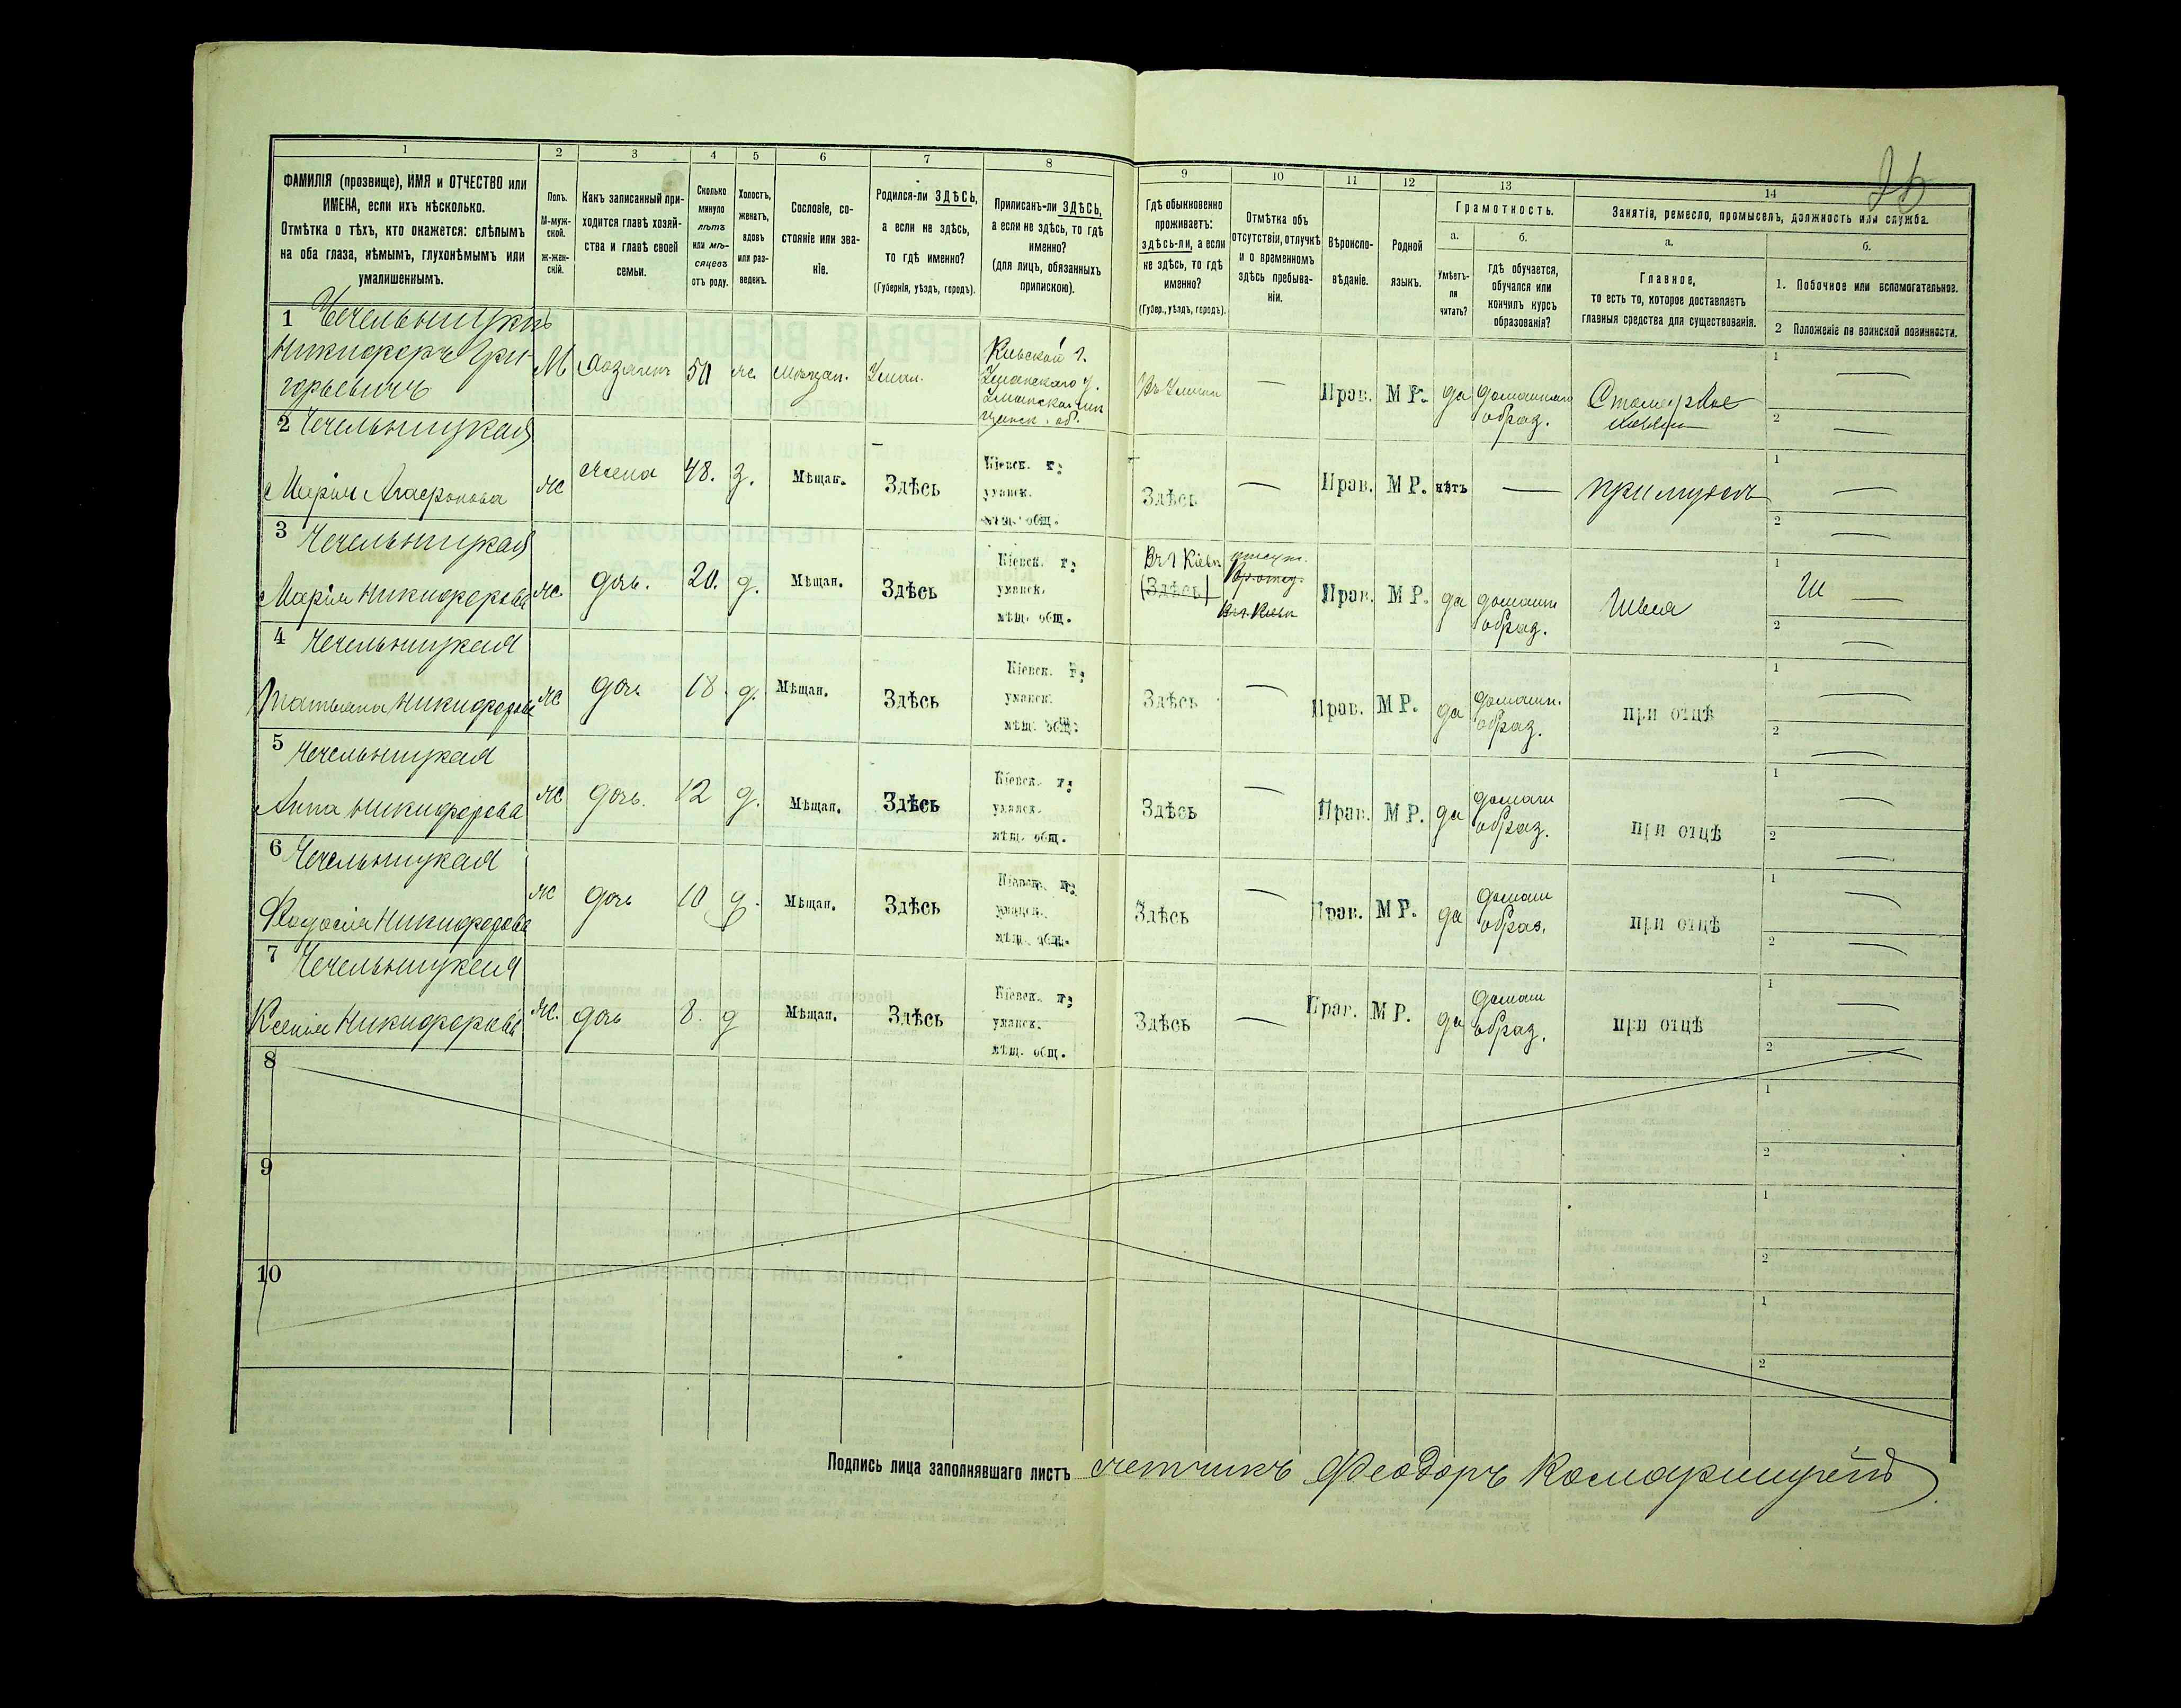 25
1 2 3 4 5 6 7 8 9 10 11 12 13 14
ФАМИЛІЯ (прозвище), ИМЯ и ОТЧЕСТВО или
ИМЕНА, если ихъ нѣсколько.
Отмѣтка о тѣхъ, кто окажется: слѣпымъ
на оба глаза, нѣмымъ, глухонѣмымъ или
умалишеннымъ.
Полъ.
М-муж-
ской.
ж-жен-
скій.
Какъ записанный при-
ходится главѣ хозяй-
ства и главѣ своей
семьи.
Сколько
минуло
лѣтъ
или мѣ-
сяцевъ
отъ роду.
Холостъ,
женатъ,
вдовъ
или раз-
веденъ.
Сословіе, со-
стояніе или зва-
ніе.
Родился-ли ЗДѢСЬ,
а если не здѣсь,
то гдѣ именно?
(Губернія, уѣздъ, городъ).
Приписанъ-ли ЗДѢСЬ,
а если не здѣсь, то гдѣ
именно?
(для лицъ, обязанныхъ
припискою).
Гдѣ обыкновенно
проживаетъ:
здѣсь-ли, а если
не здѣсь, то гдѣ
именно?
(Губер., уѣздъ, городъ).
Отмѣтка объ
отсутствіи, отлучкѣ
и о временномъ
здѣсь пребыва-
ніи.
Вѣроиспо-
вѣданіе.
Родной
языкъ.
Грамотность.
а.
Умѣетъ-
ли
читать?
б.
гдѣ обучается,
обучался или
кончилъ курсъ
образованія?
Занятія, ремесло, промыселъ, должность или служба.
а.
Главное,
то есть то, которое доставляетъ
главныя средства для существованія.
б.
1. Побочное или вспомогательное.
2 Положеніе по воинской повинности.
1 Чечельницкій
Никифоръ Гри-
горьевичъ
М Хозяинъ 50 ж. Мѣщан. Уман.
Кіевской г.
Уманскаго у.
Уманское мѣ
щанск. об.
Въ Умани — Прав. М Р. да домашнее
образ.
Столярное
1 —
2 —
2 Чечельницкая
Марія Агафонова
ж жена 48. з. Мѣщан. Здѣсь
Кіевск. г:
уманск.
мѣщ. общ.
Здѣсь — Прав. М Р. нѣтъ — при мужѣ
1 —
2 —
3 Чечельницкая
Марія Никифорова
ж. дочь. 20. д. Мѣщан. Здѣсь
Кіевск. г:
уманск.
мѣщ. общ.
Въ г Кіевѣ
(Здѣсь)
Въ г. Кіевѣ
Прав. М Р. да домашн
образ.
Швея
1 Ш —
2 —
4 Чечельницкая
Татьяна Никифорова
ж дочь 18. д. Мѣщан. Здѣсь
Кіевск. г:
уманск.
мѣщ. общ.
Здѣсь — Прав. М Р. да домашн.
образ.
при отцѣ
1 —
2 —
5 Чечельницкая
Анна Никифорова
ж дочь. 12 д. Мѣщан. Здѣсь
Кіевск. г:
уманск.
мѣщ. общ.
Здѣсь — Прав. М Р. да домаш
образ.
при отцѣ
1 —
2 —
6 Чечельницкая
Феодосія Никифорова
ж дочь 10 д. Мѣщан. Здѣсь
Кіевск. г:
уманск.
мѣщ. общ.
Здѣсь — Прав. М Р. да домаш
образ.
при отцѣ
1 —
2 —
7 Чечельницкая
Ксенія Никифорова
ж. дочь 8. д Мѣщан. Здѣсь
Кіевск. г:
уманск.
мѣщ. общ.
Здѣсь — Прав. М Р. да домаш
образ.
при отцѣ
1 —
2 —
8
1
2
9
1
2
10
1
2
Подпись лица заполнявшаго листъ счетчикъ Феодоръ Комарницкій